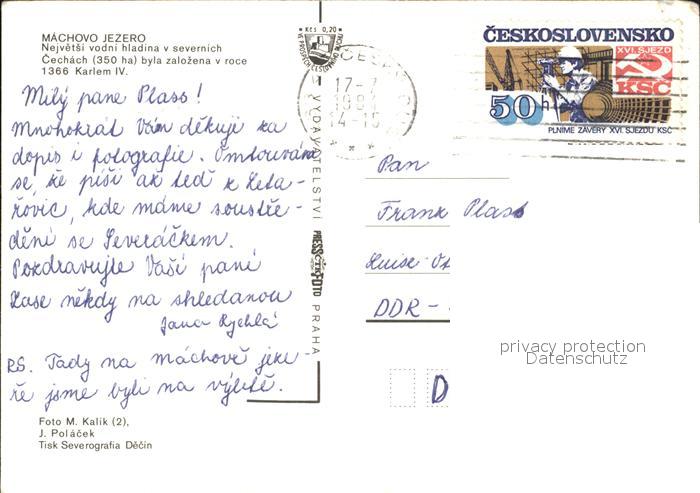 MÁCHOVO JEZERO
Největší vodní hladina v severních
Čechách (350 ha) byla založena v roce
1366 Karlem IV.
Milý pane Plass!
Mnohokrát Vám děkuji za
dopis i fotografie. Omlouvám
se, že píši až teď z Leta-
řovic, kde máme soustře-
dění se Severáčkem.
Pozdravujte Vaší paní
Zase někdy na shledanou
Jana Rychlá
PS. Tady na máchově jeze-
ře jsme byli na výletě.
Foto M. Kalík (2),
J. Poláček
Tisk Severografia Děčín
Kčs 0,20
VYDAVATELSTVÍ PRESSFOTO PRAHA
17-7
14-15
ČESKOSLOVENSKO
XVI. SJEZD
KSČ
50 h
PLNÍME ZÁVĚRY XVI. SJEZDU KSČ
Pan
Frank Plass
DDR -
D
privacy protection
Datenschutz